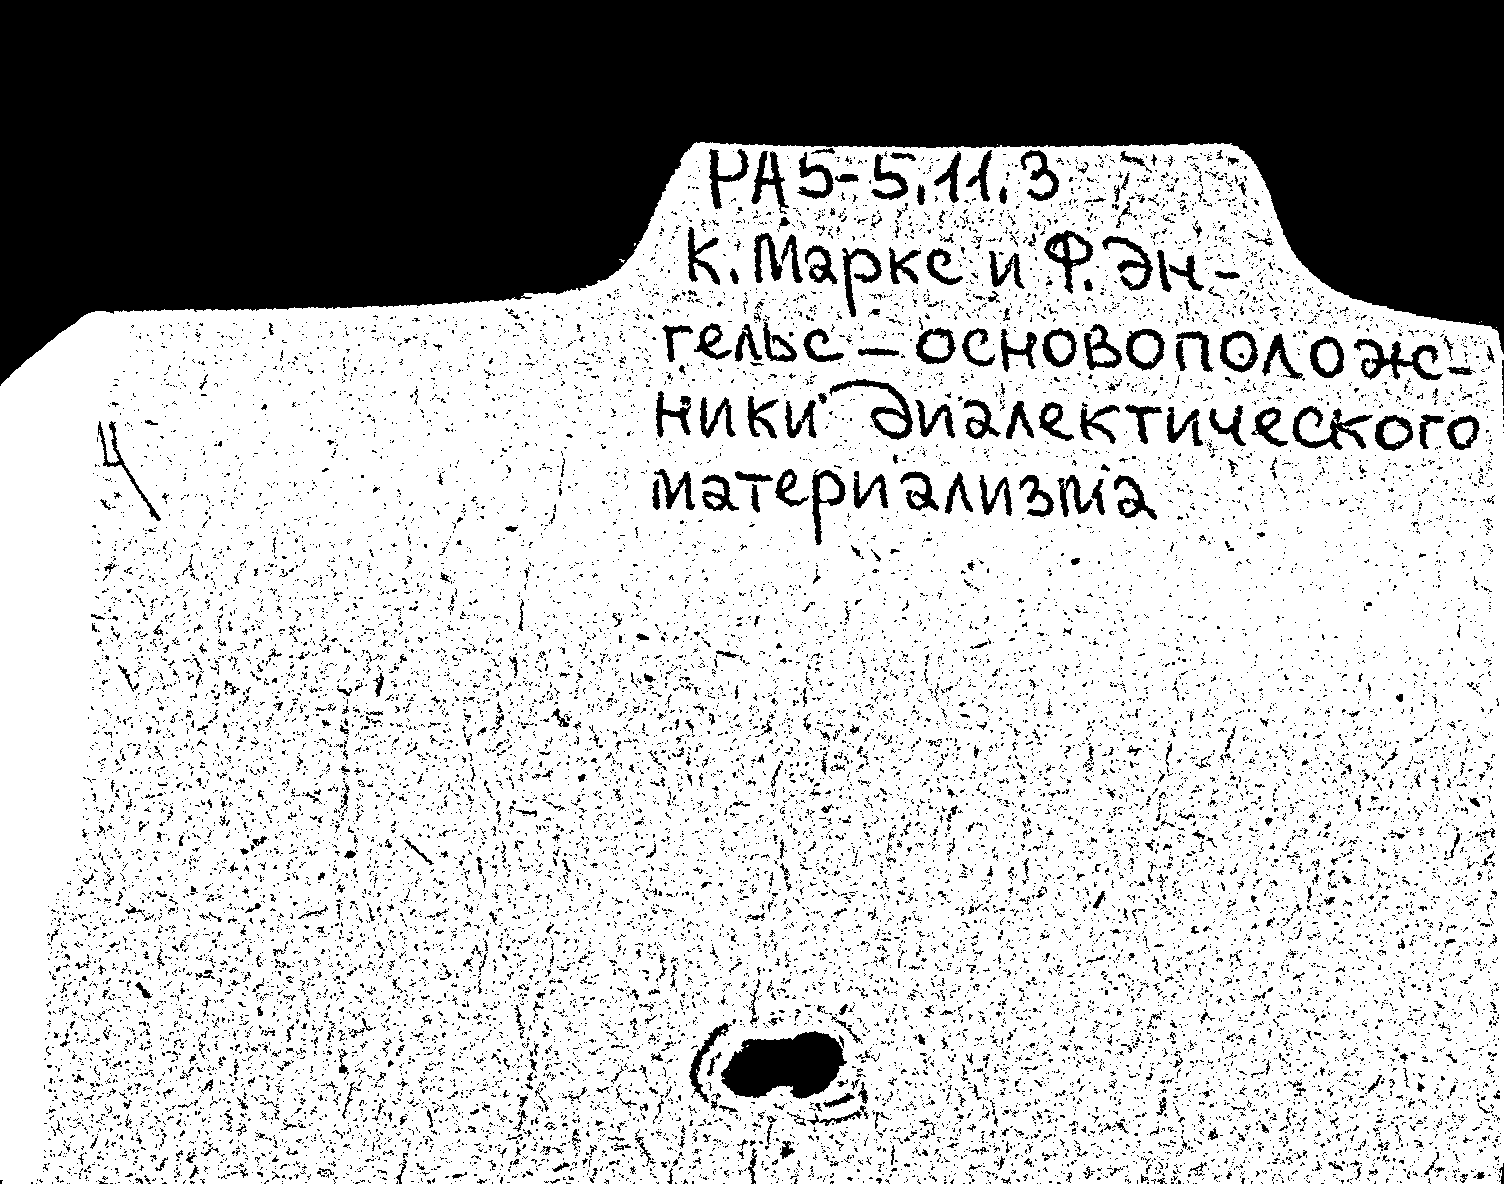 РА5-5.11.3
К. Маркс и Ф. Эн-
гельс — основополож-
ники диалектического
материализма